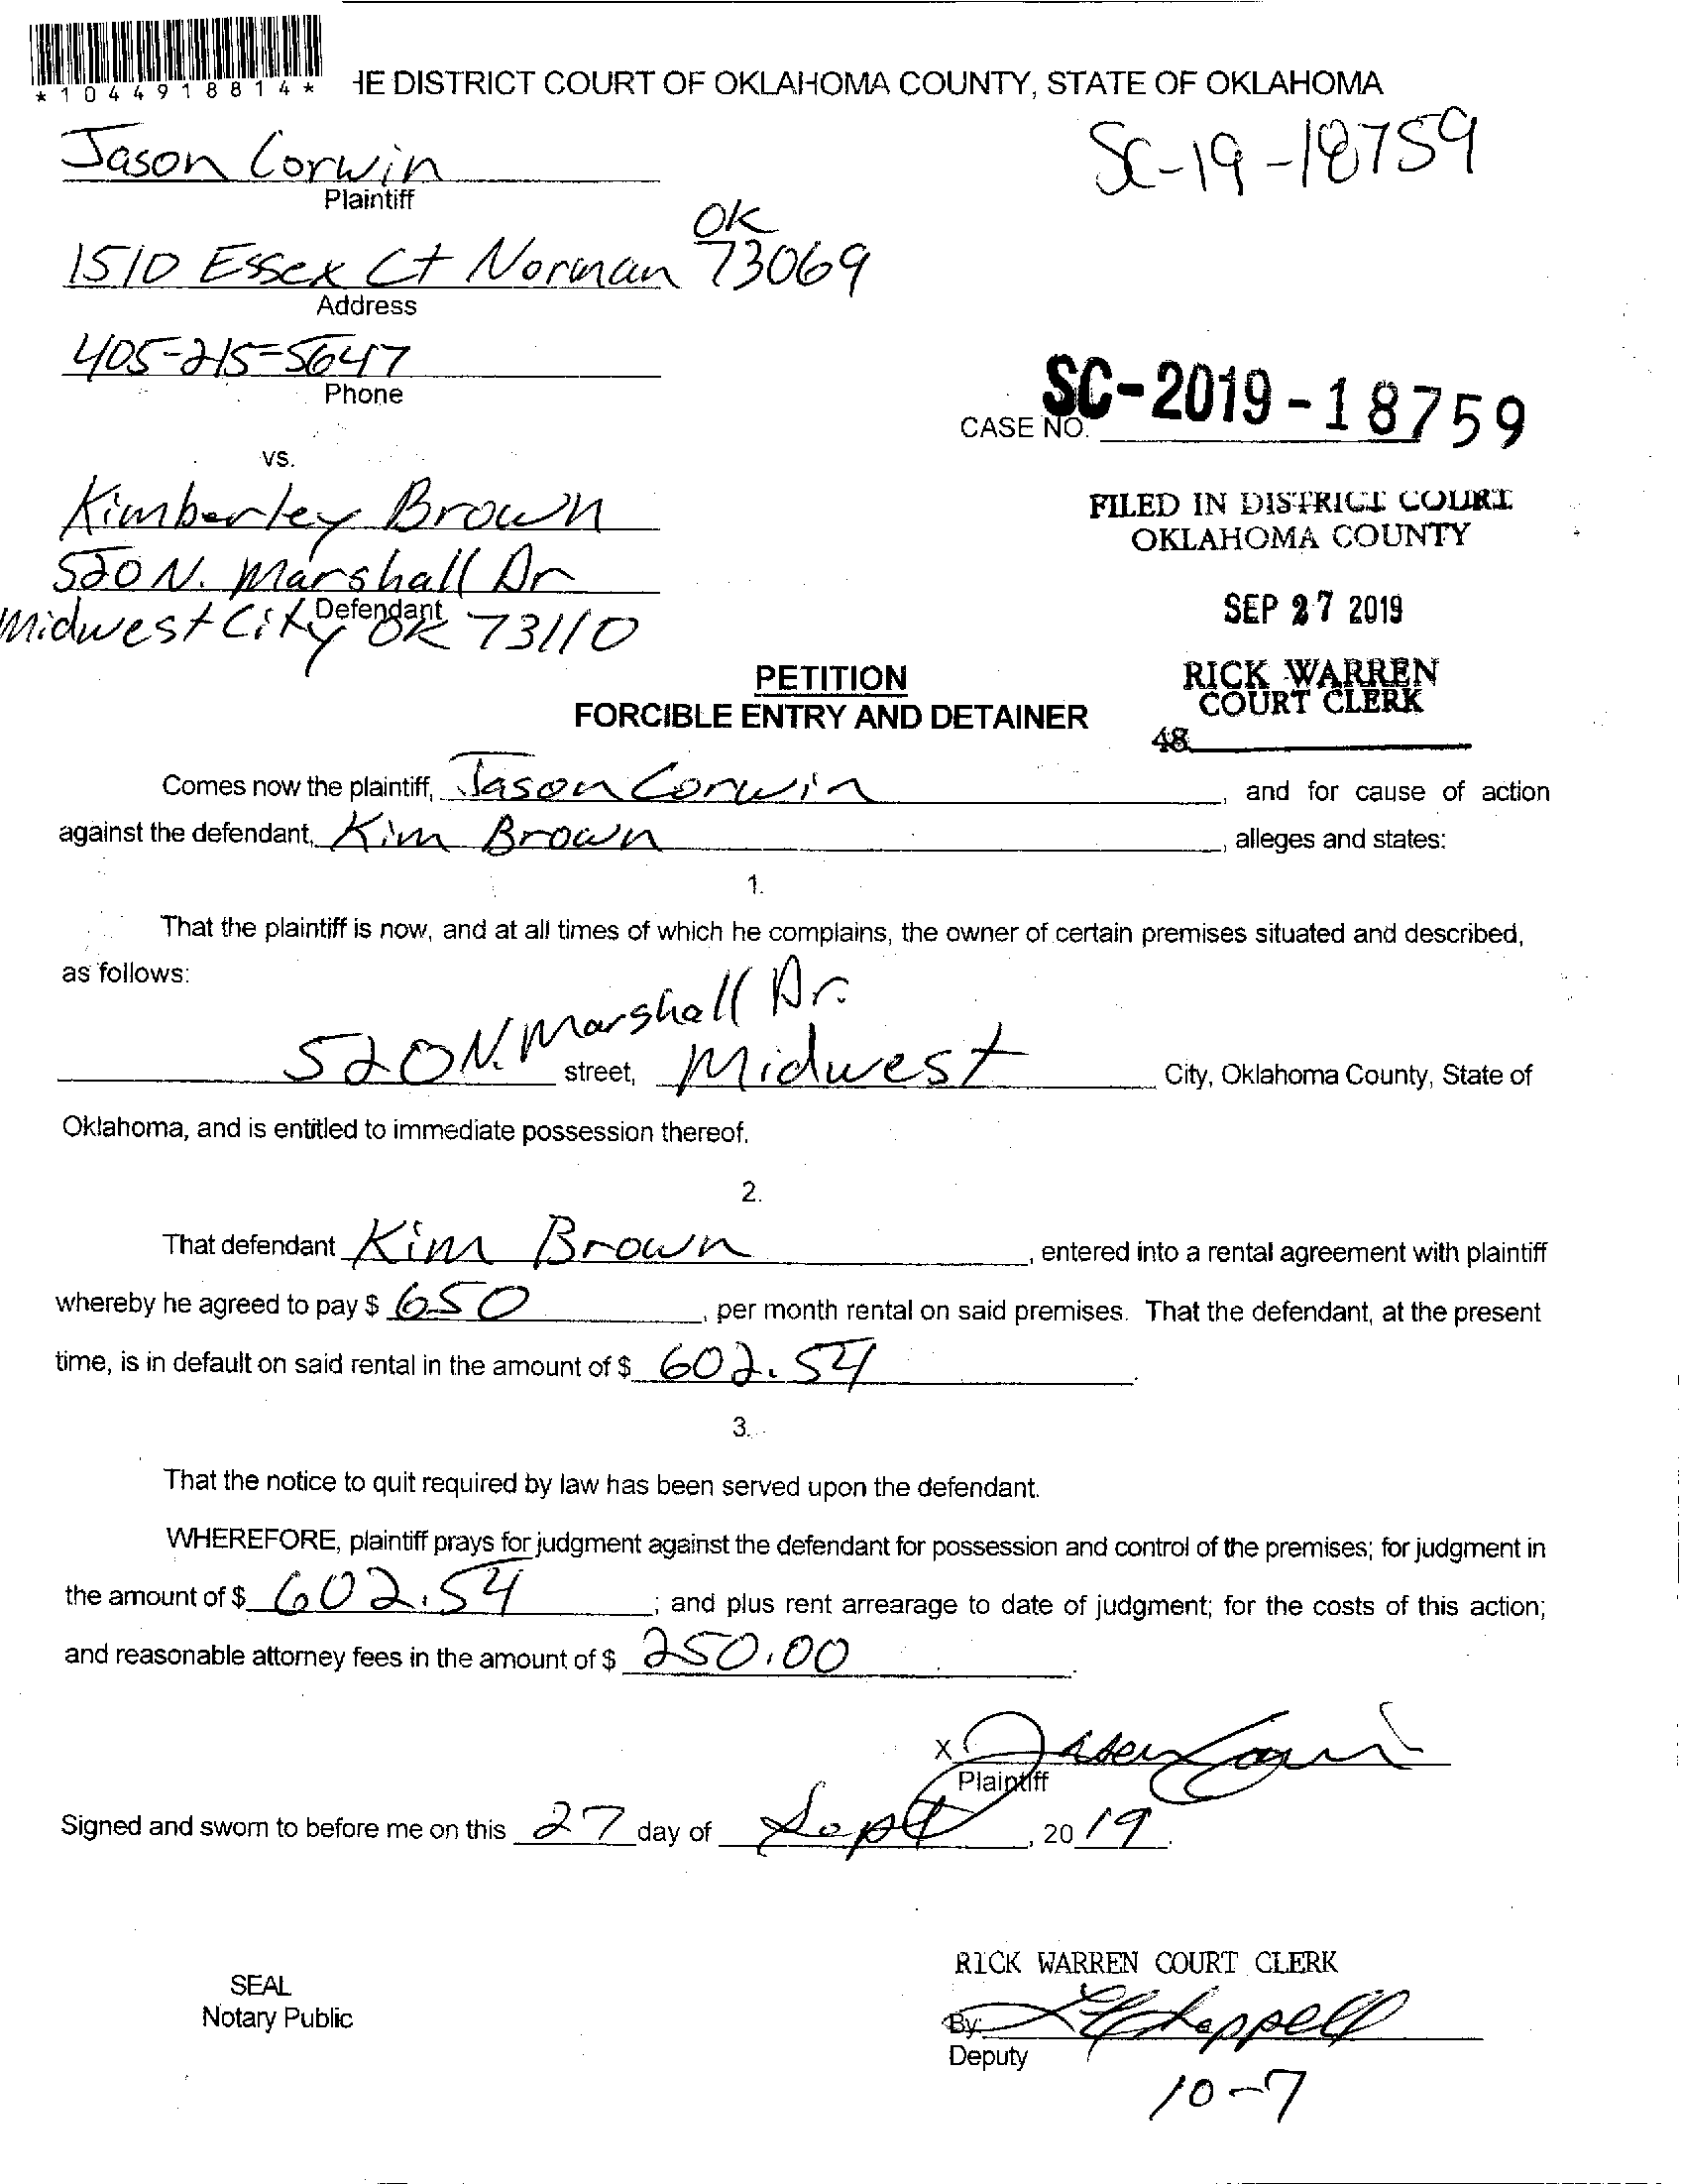 *1044918814*
HE DISTRICT COURT OF OKLAHOMA COUNTY, STATE OF OKLAHOMA
Jason Corwin
SC-19-18759
Plaintiff
OK
1510 Essex Ct Norman 73069
Address
405-215-5647
Phone
CASE NO. SC-2019-18759
vs.
Kimberley Brown
FILED IN DISTRICT COURT
OKLAHOMA COUNTY
520 N. Marshall Dr
Defendant
Midwest City OK 73110
SEP 27 2019
RICK WARREN
COURT CLERK
48
PETITION
FORCIBLE ENTRY AND DETAINER
Comes now the plaintiff, Jason Corwin, and for cause of action
against the defendant, Kim Brown, alleges and states:
1.
That the plaintiff is now, and at all times of which he complains, the owner of certain premises situated and described,
as follows:
520 N. Marshall Dr. street, Midwest City, Oklahoma County, State of
Oklahoma, and is entitled to immediate possession thereof.
2.
That defendant Kim Brown, entered into a rental agreement with plaintiff
whereby he agreed to pay $ 650, per month rental on said premises. That the defendant, at the present
time, is in default on said rental in the amount of $ 602.54.
3.
That the notice to quit required by law has been served upon the defendant.
WHEREFORE, plaintiff prays for judgment against the defendant for possession and control of the premises; for judgment in
the amount of $ 602.54; and plus rent arrearage to date of judgment; for the costs of this action;
and reasonable attorney fees in the amount of $ 250.00.
X Jason Corwin
Plaintiff
Signed and sworn to before me on this 27 day of Sept, 2019.
RICK WARREN COURT CLERK
SEAL
Notary Public
By: Chappell
Deputy
10-7